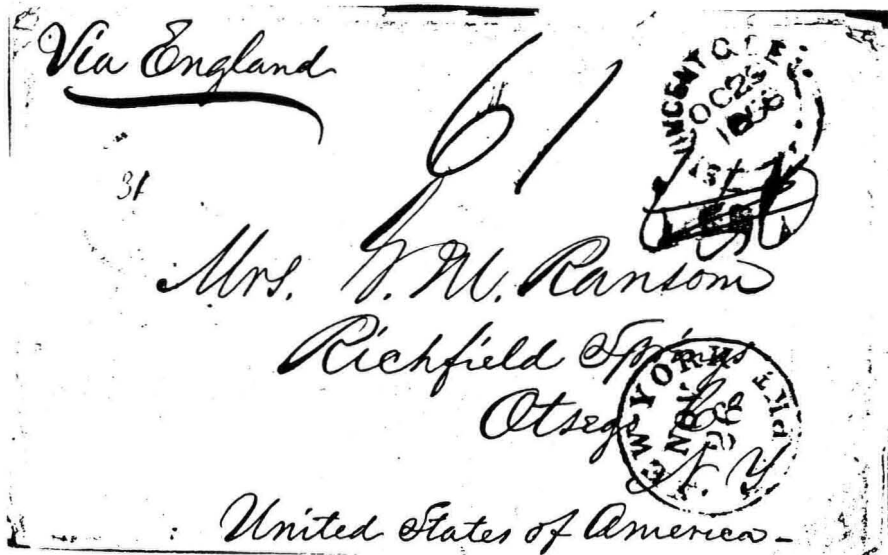 Via England
61
31
OC 25
Mrs. W. M. Ransom
Richfield Springs
Otsego Co
N. Y.
NEW YORK PKT
NOV
26
United States of America -